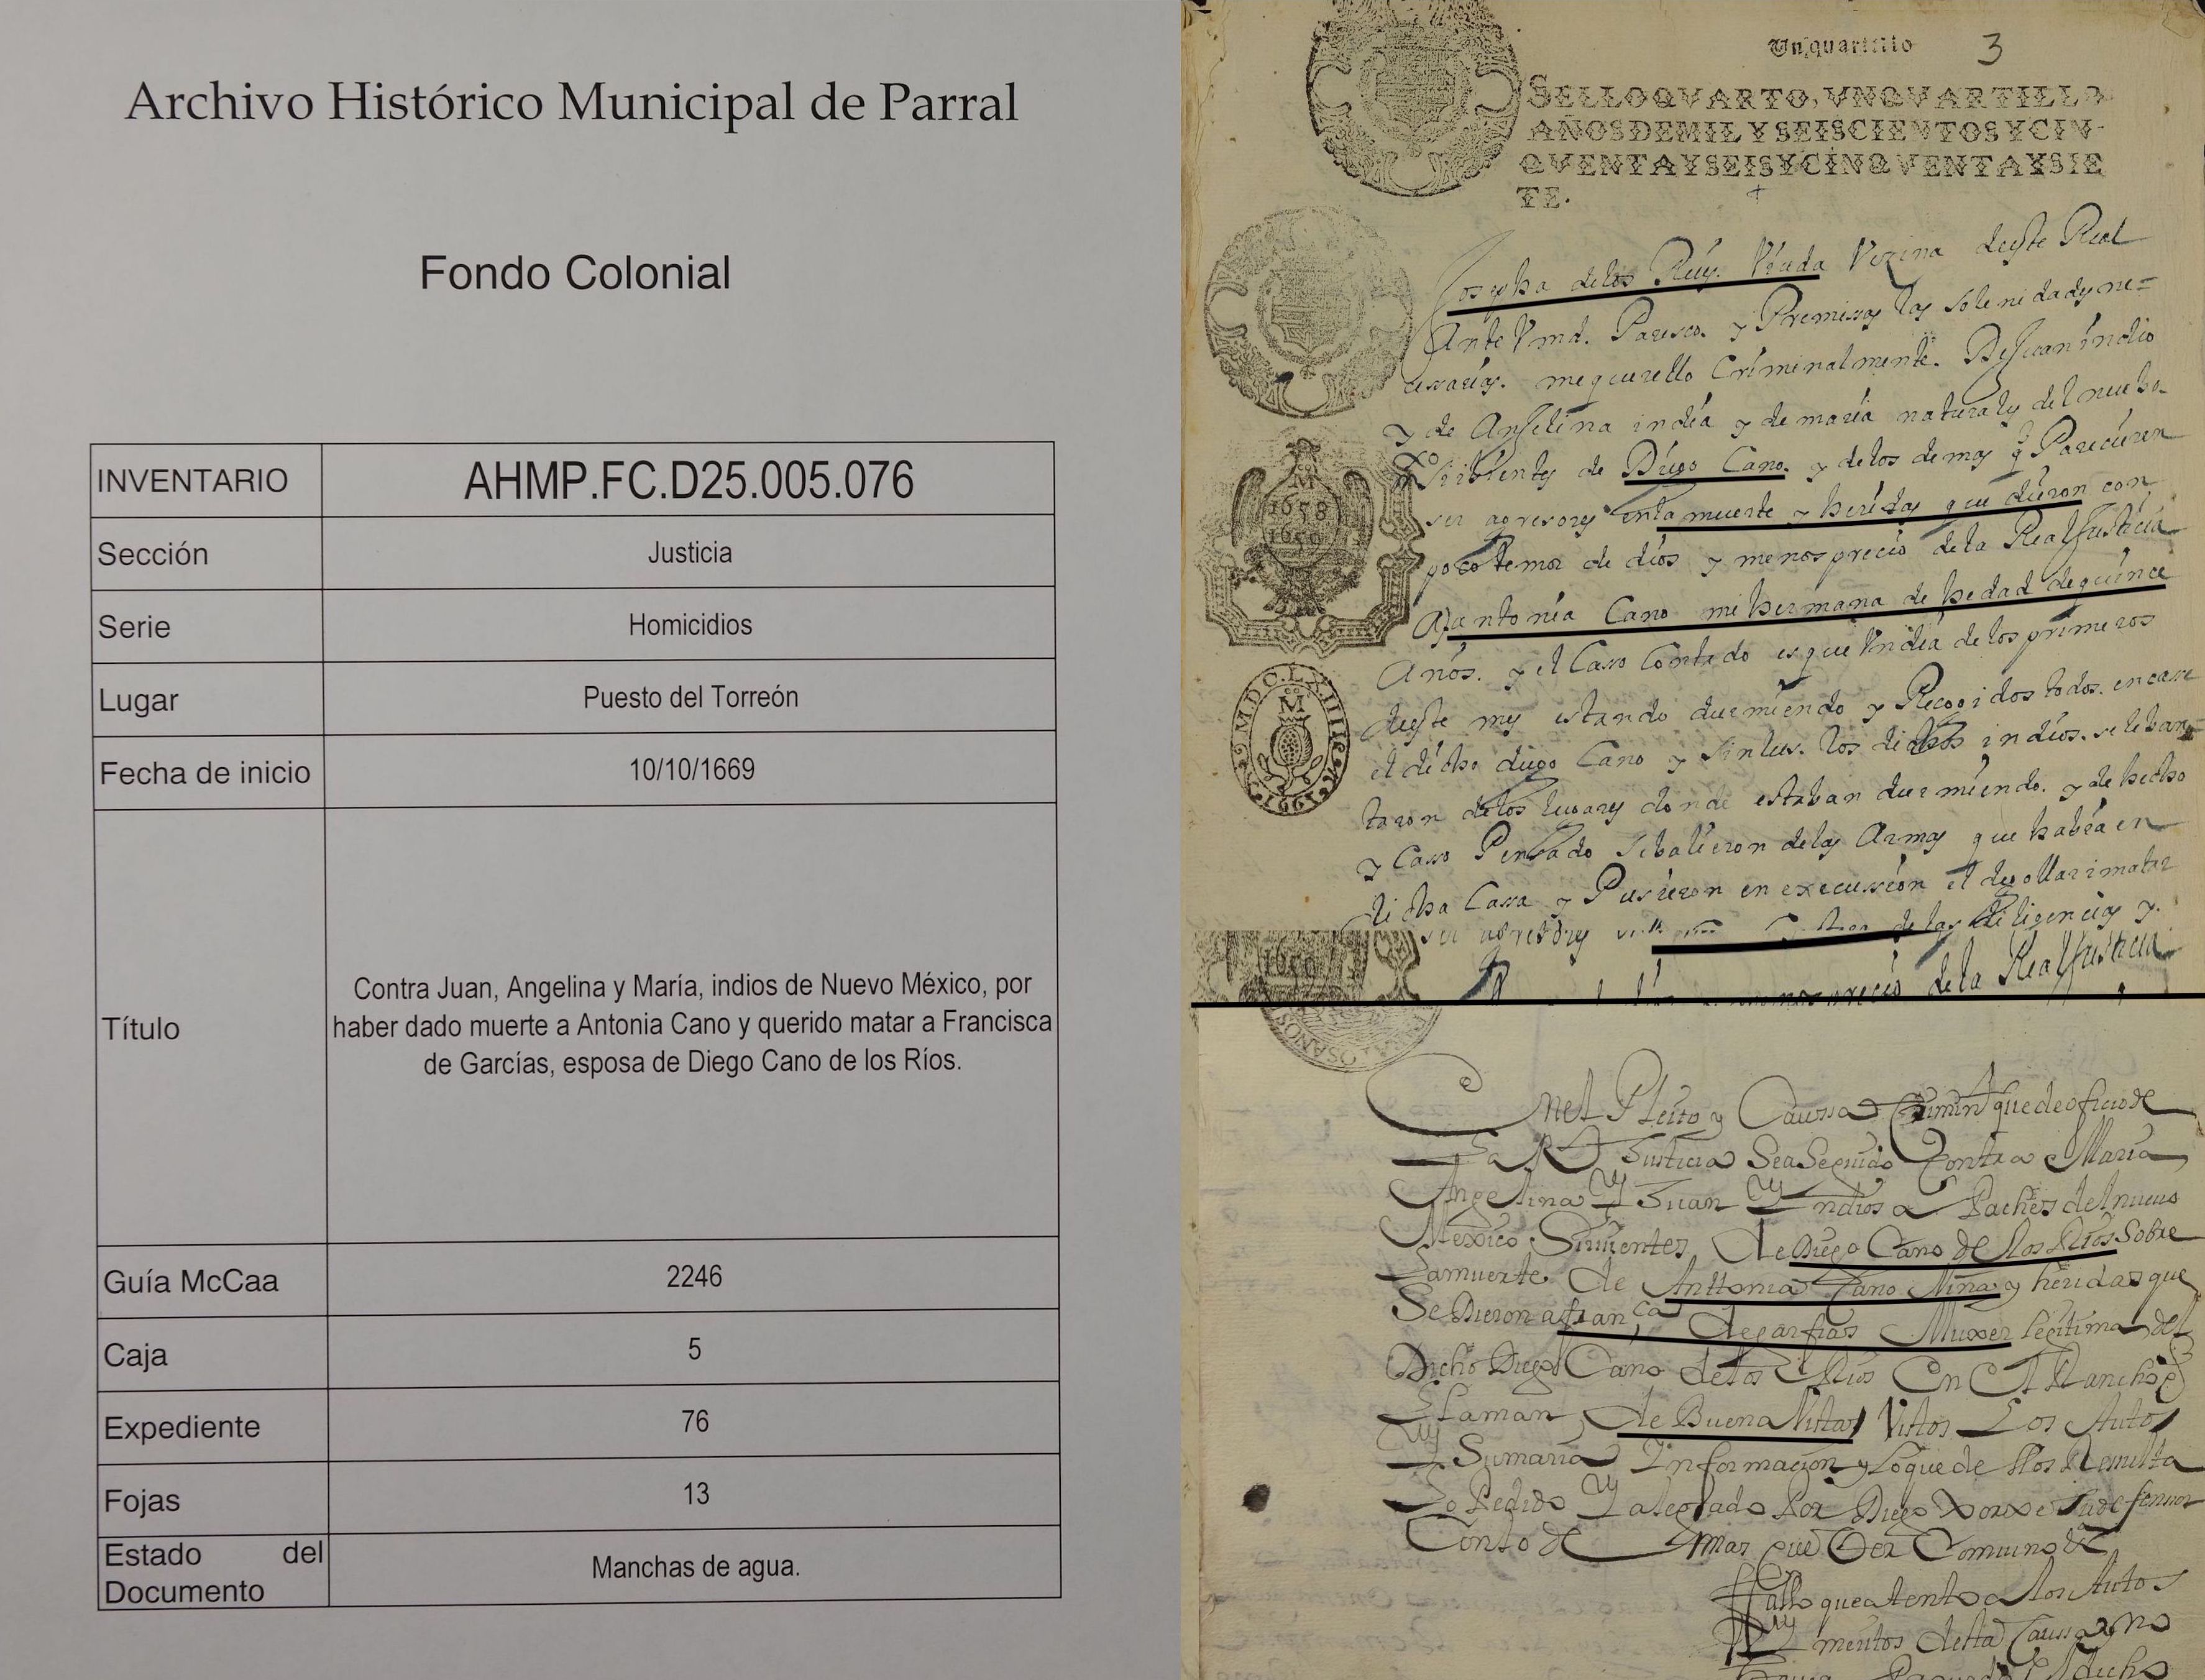 Archivo Histórico Municipal de Parral
Fondo Colonial
INVENTARIO AHMP.FC.D25.005.076
Sección Justicia
Serie Homicidios
Lugar Puesto del Torreón
Fecha de inicio 10/10/1669
Título Contra Juan, Angelina y María, indios de Nuevo México, por
haber dado muerte a Antonia Cano y querido matar a Francisca
de Garcías, esposa de Diego Cano de los Ríos.
Guía McCaa 2246
Caja 5
Expediente 76
Fojas 13
Estado del
Documento Manchas de agua.
Un quartillo 3
SELLO QVARTO, VN QVARTILLO
AÑOS DE MIL Y SEISCIENTOS Y CIN-
QVENTA Y SEIS Y CINQVENTA Y SIE
TE.
Josepha de los Reyes Viuda Vezina deste Real
Ante Vmd. Paresco y Premissas las solenidades ne=
cesarias. me querello Criminalmente. De Juan indio
y de Anjelina india y de maria naturales del nuebo
Mxco sirbientes de Diego Cano. y de los demas q Parecieren
ser agresores en la muerte y heridas que dieron con
poco temor de dios y menos precio de la Real Justicia
A antonia Cano mi hermana de hedad de quince
Años. y el Caso Contado es que Un dia de los primeros
deste mes estando durmiendo y Recogidos todos. en casa
el dicho diego Cano y sintus. los dichos indios. se leban=
taron de los lugares donde estaban durmiendo. y de hecho
y Caso Pensado se balieron de las Armas que habia en
dicha Cassa y Pusieron en execussion el degollar i matar
ser agresores de las diligencias y.
menos precio de la Real Justicia
1658
1659
M.DC.LXIII
1661
En el Pleito y Caussa Crimin.l que de oficio de
La Rl Justicia Sea Seguido Contra Maria
Angelina Y Juan Yndios a Paches del nuevo
Mexico Sirvientes de Diego Cano de los Rios Sobre
La muerte de Anttonia Cano Niña y heridas que
Se Dieron a fran.ca de garfias Muxer legitima del
Dicho Diego Cano de los Rios En El Rancho q
Llaman de Buena Vista Vistos Los Autos
Y Sumaria Informacion y lo que de ellos Resulta
Lo Pedido Y alegado Por Diego Xorxe su defensor
Con lo de mas que Ver Comvino &a
Fallo que atento a los Autos
Y meritos desta Caussa y no